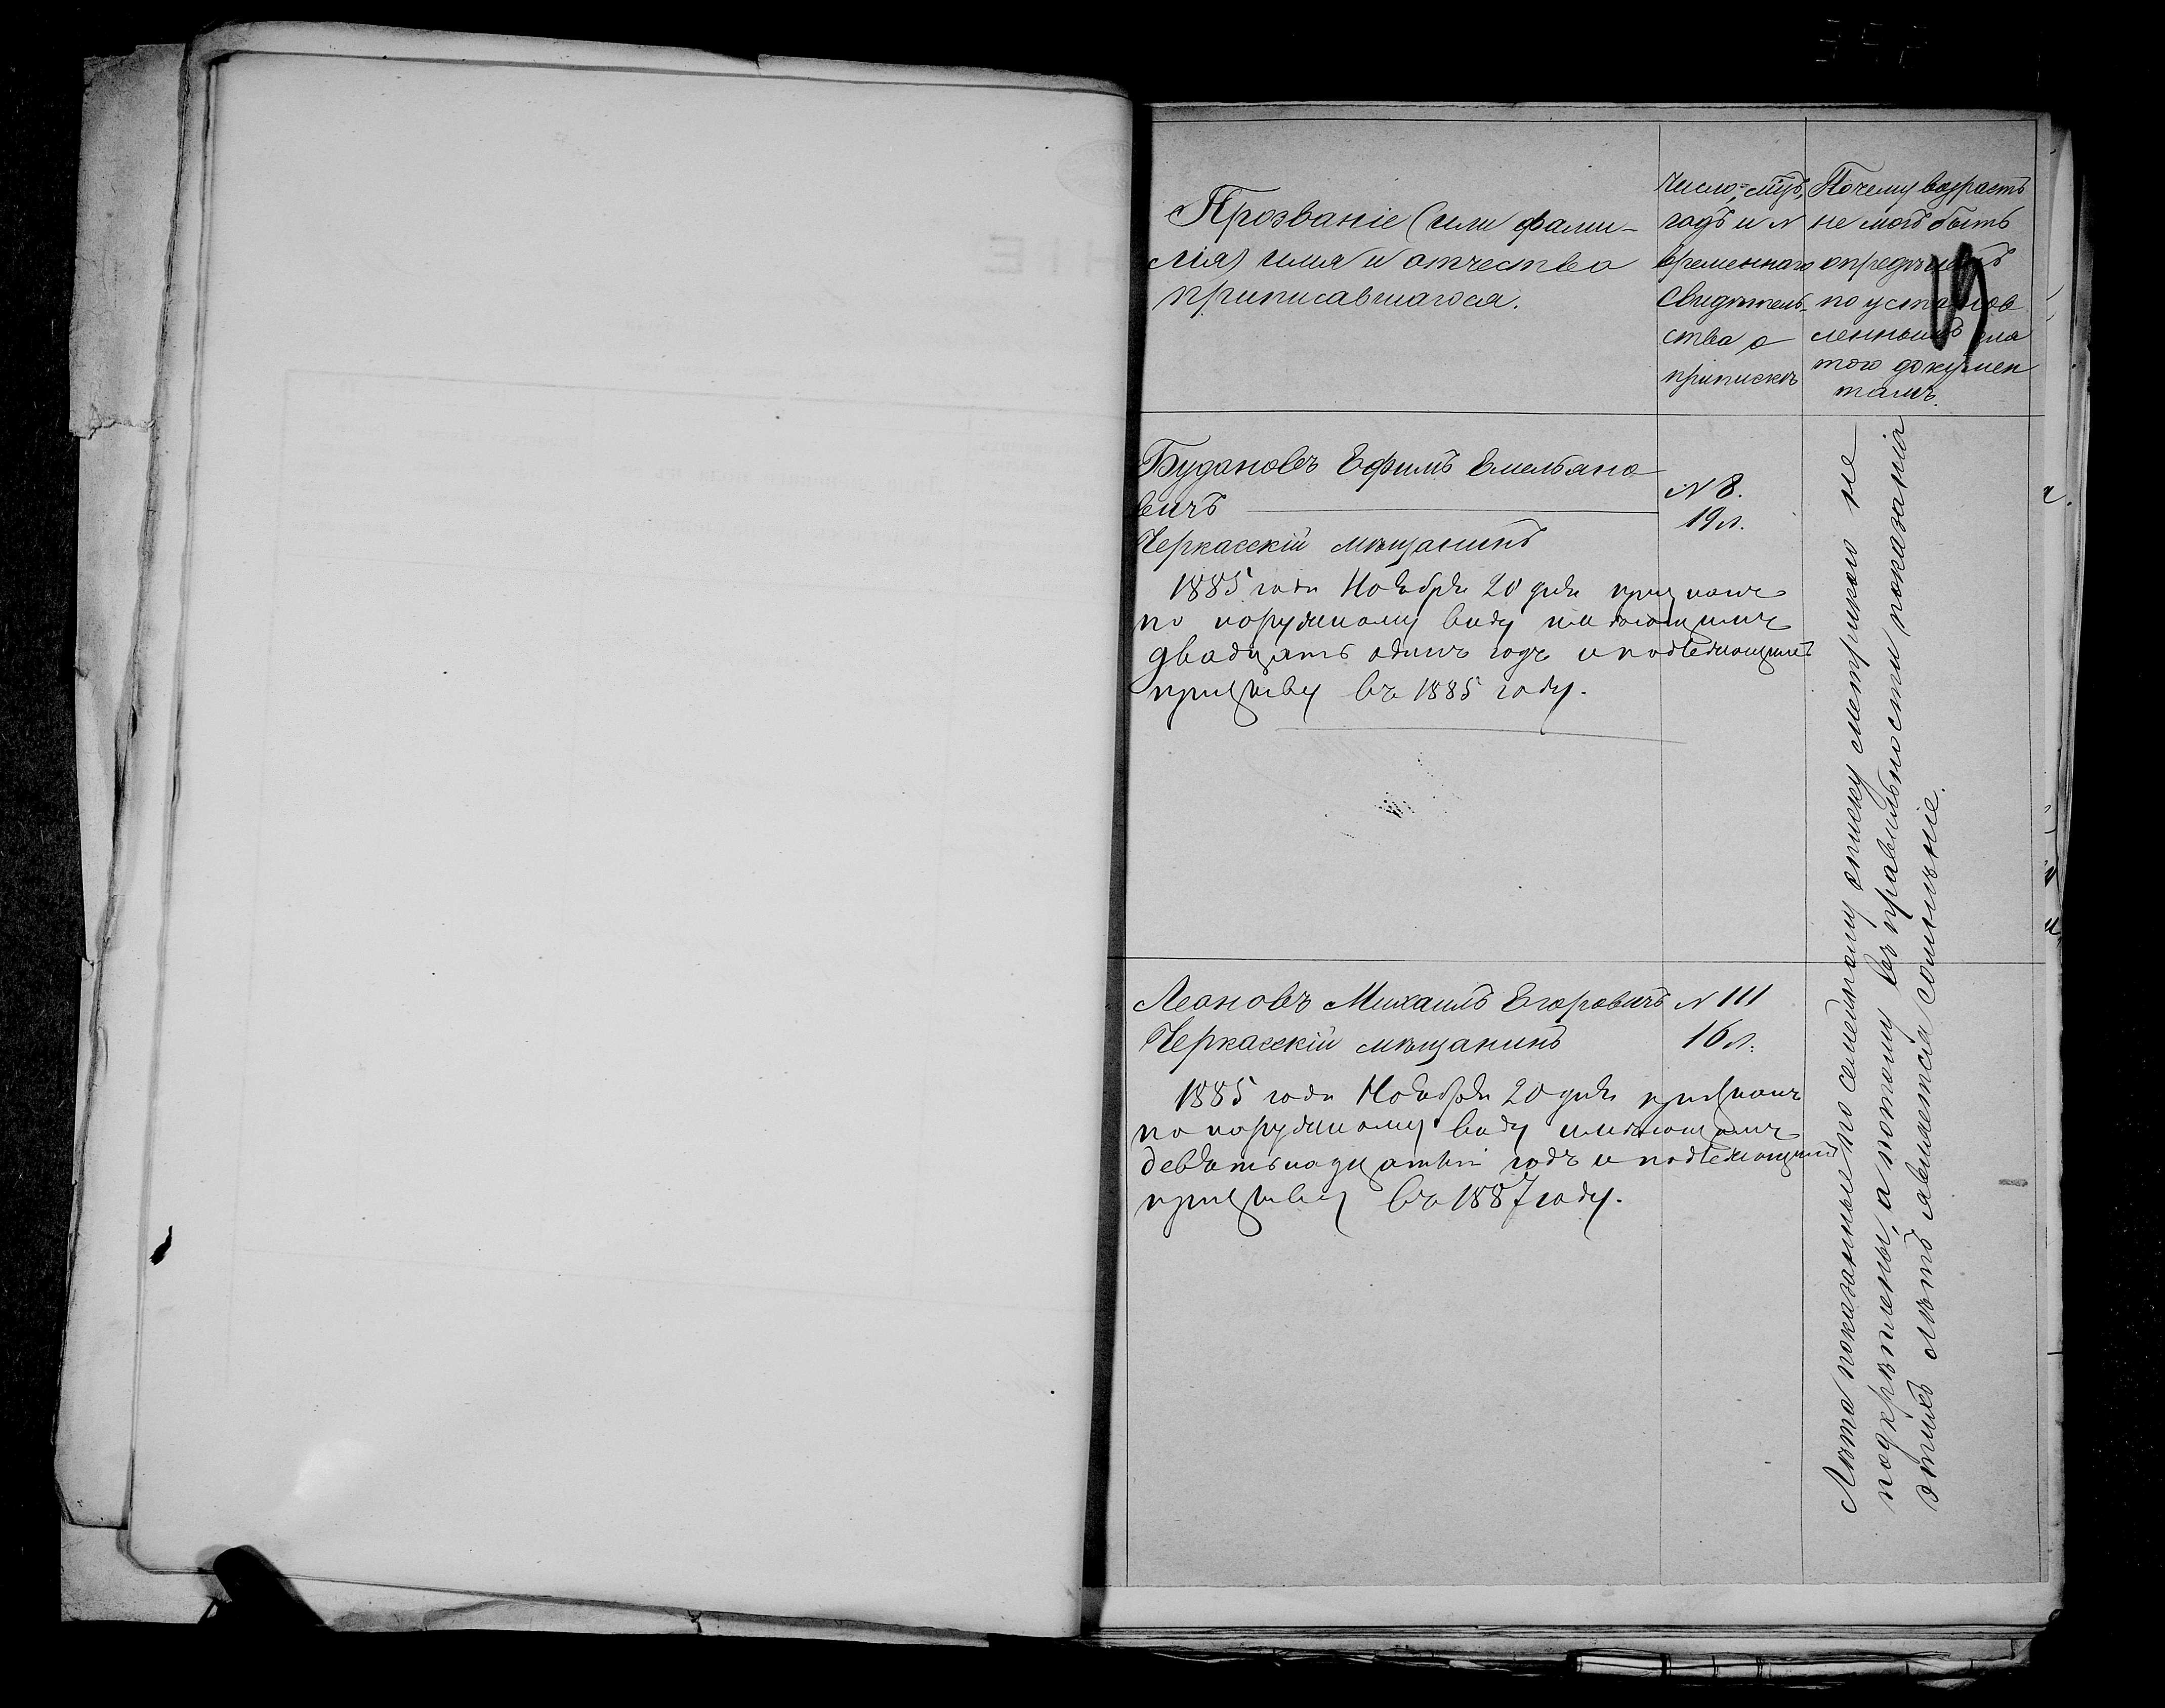 Прозваніе (или фами-
лія) имя и отчество
приписавшагося.
Число, м-цъ,
годъ и N
временнаго
Свидѣтель-
ства о
припискѣ
Почему возрастъ
не могъ быть
опредѣленъ
по установ
леннымъ для
того докумен
тамъ.
Будановъ Ефимъ Емельяно
вичъ
Черкасскій мѣщанинъ
N 8.
19 л.
1885 года Ноября 20 дня признанъ
по наружному виду имѣющимъ
двадцать одинъ годъ и подлежащимъ
призыву въ 1885 году.
Леоновъ Михаилъ Егоровичъ
Черкасскій мѣщанинъ
N 111
16 л.
1885 года Ноября 20 дня признанъ
по наружному виду имѣющимъ
девятнадцатый годъ и подлежащимъ
призыву въ 1887 году.
Лѣта показанные по семейному списку метрикою не
подкрѣплены, а потому въ правильности показанія
этихъ лѣтъ является сомнѣніе.